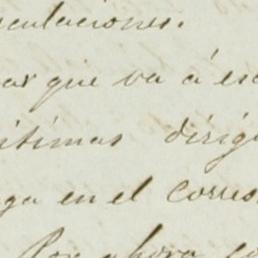 culaciones.
que va á esc
itimas dirig
ga en el corres
Por ahora